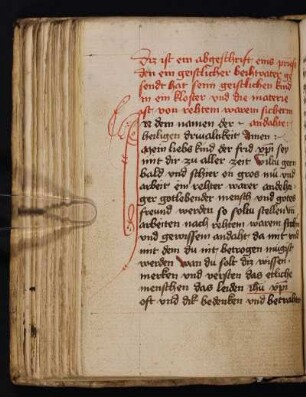 Diz ist ein abgeschrift eins prieffs
den ein geistlicher beihtvater ge
sendet hat seim geistlichen kind
in ein kloster vnd die materie
ist von rehtem warem sicherm
In dem namen der andaht :
heiligen driualtikeit Amen :
Mein liebs kind der frid xpi sey
mit dir zu aller zeit wiltu gern
bald vnd schier on gros mü vnd
arbeit ein rehter warer andehti
ger gotlebender mensch vnd gotes
freund werden so soltu stellen vnd
arbeiten nach rehtem warem sichern
vnd gewissem andaht da mit vnd
mit dem du nit betrogen mugst
werden wan du solt diz wissen
merken vnd versten das etliche
menschen das leiden ihu xpi
oft vnd dik bedenken vnd betrahten